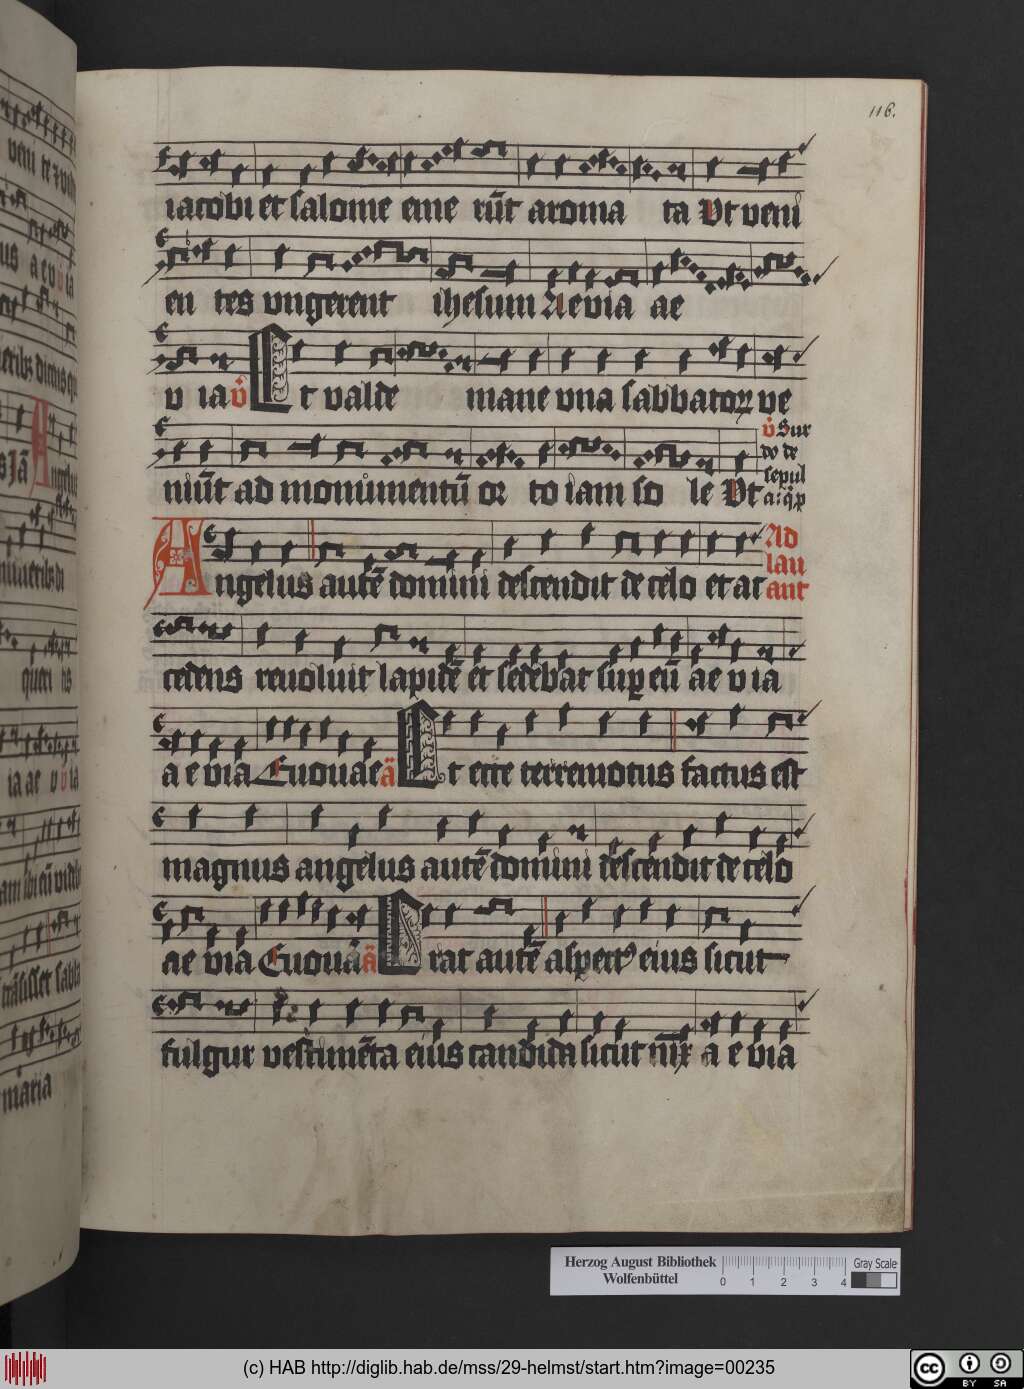 116.
iacobi et salome eme rūt aroma ta Vt veni
en tes vngerent ihesum Aevia ae
v ia v̊ Et valde mane vna sabbatoꝝ ve
niūt ad monumentū or to iam so le Vt
v̊ Sur
do de
sepul
Angelus autē domini descendit de celo et ac
Ad
lau
ant
cedens reuoluit lapidē et sedebat suꝑ eū ae v ia
a e via Euouae ā Et ecce terremotus factus est
magnus angelus autē domini descendit de celo
ae via Euoua ā Erat autē aspectꝰ eius sicut
fulgur vestimēta eius candida sicut nix a e via
Herzog August Bibliothek
Wolfenbüttel
0 1 2 3 4
Gray Scale
(c) HAB http://diglib.hab.de/mss/29-helmst/start.htm?image=00235
cc BY SA